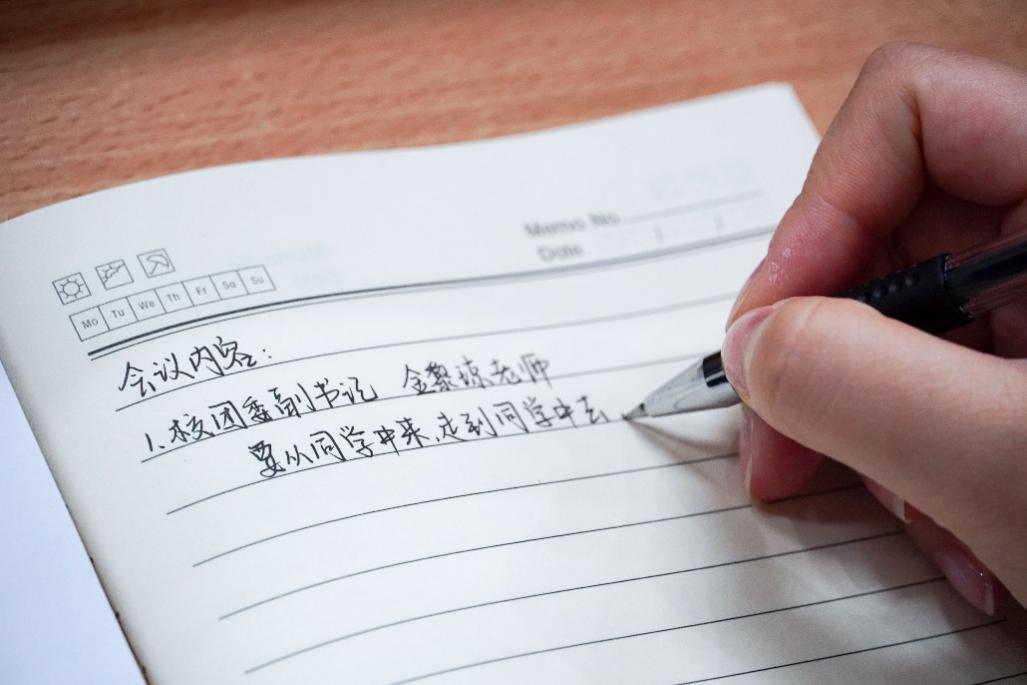 Memo No
Date
Mo Tu We Th Fr Sa Su
会议内容:
1.校团委副书记 金黎琼老师
要从同学中来,走到同学中去